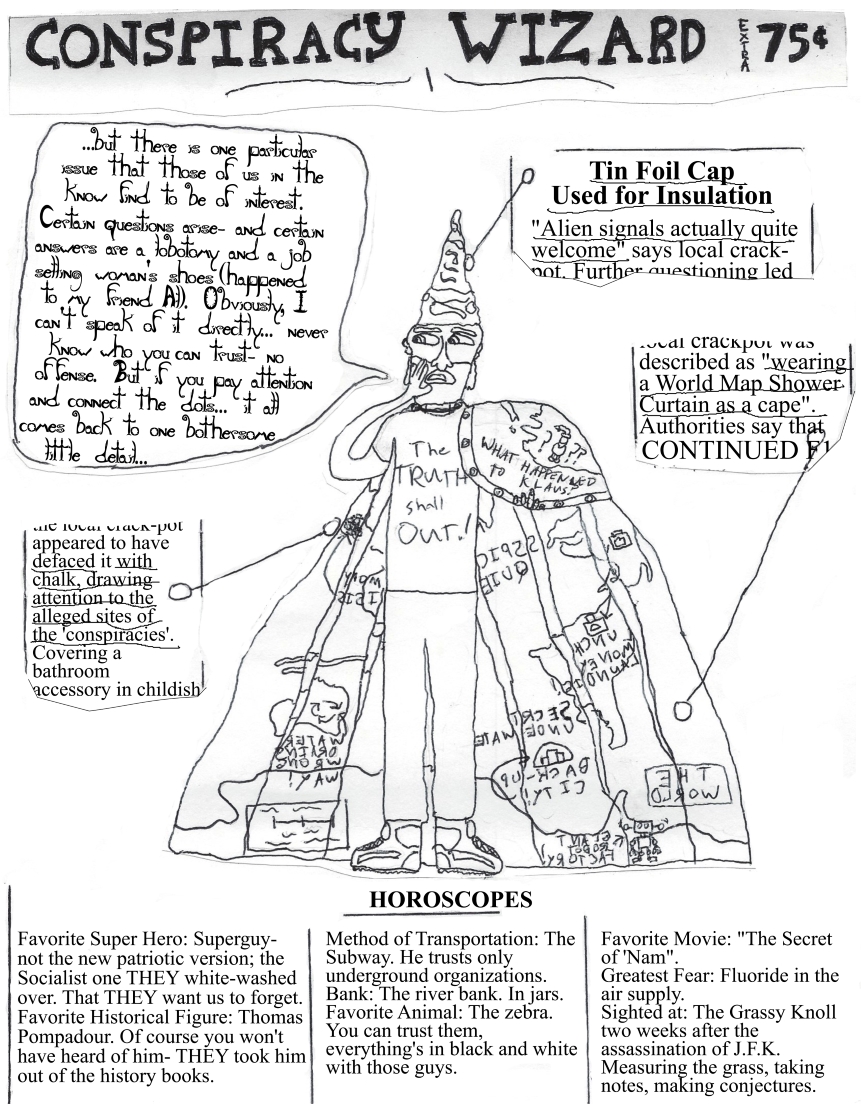 CONSPIRACY WIZARD EXTRA 75¢
...but there is one particular
issue that those of us in the
know find to be of interest.
Certain questions arise- and certain
answers are a lobotomy and a job
selling woman's shoes (happened
to my friend Al). Obviously, I
can't speak of it directly... never
know who you can trust- no
offense. But if you pay attention
and connect the dots... it all
comes back to one bothersome
little detail...
Tin Foil Cap
Used for Insulation
"Alien signals actually quite
welcome" says local crack-
pot. Further questioning led
local crackpot was
described as "wearing
a World Map Shower
Curtain as a cape".
Authorities say that
CONTINUED
the local crack-pot
appeared to have
defaced it with
chalk, drawing
attention to the
alleged sites of
the 'conspiracies'.
Covering a
bathroom
accessory in childish
The
TRUTH
shall
OUT!
???
WHAT HAPPENED
TO KLAUS?
SECRET
UNDE
WATE
BACK-UP
CITY!
WATER
DRAINS
WRONG
WAY!
THE
WORLD
GIANT
ROBOT
FACTORY!
HOROSCOPES
Favorite Super Hero: Superguy-
not the new patriotic version; the
Socialist one THEY white-washed
over. That THEY want us to forget.
Favorite Historical Figure: Thomas
Pompadour. Of course you won't
have heard of him- THEY took him
out of the history books.
Method of Transportation: The
Subway. He trusts only
underground organizations.
Bank: The river bank. In jars.
Favorite Animal: The zebra.
You can trust them,
everything's in black and white
with those guys.
Favorite Movie: "The Secret
of 'Nam".
Greatest Fear: Fluoride in the
air supply.
Sighted at: The Grassy Knoll
two weeks after the
assassination of J.F.K.
Measuring the grass, taking
notes, making conjectures.